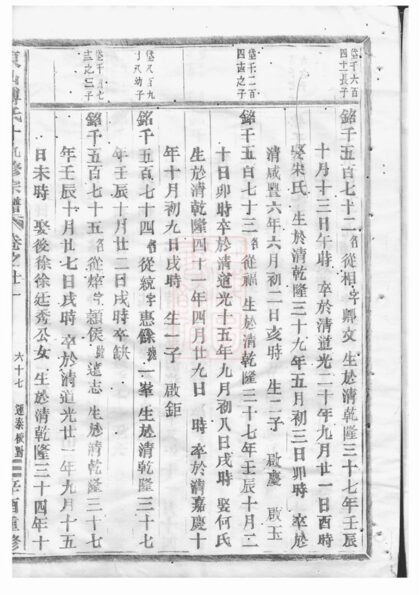 岱千六百
四十長子
銘千五百七十二 名從相 字鼎文 生於清乾隆三十七年壬辰
十月十三日午時 卒於清道光二十年九月廿一日酉時
娶宋氏 生於清乾隆三十九年五月初三日卯時 卒於
清咸豐六年六月初二日亥時 生二子 啟慶 啟玉
岱千二百
四十之子
銘千五百七十三 名從福 生於清乾隆三十七年壬辰十月二
十日卯時卒於清道光十五年九月初八日戌時 娶何氏
生於清乾隆四十二年四月廿九日 時 卒於清嘉慶十
年十月初九日戌時 生一子 啟鉅
銘千五百七十四 名從統 字惠 號一峯 生於清乾隆三十七
年壬辰十月廿二日戌時卒缺
銘千五百七十五 名從 字 侯 號遠志 生於清乾隆三十七
年壬辰十月廿七日戌時 卒於清道光廿一年九月十五
日未時 娶後徐徐廷秀公女 生於清乾隆三十四年十
氏十九修宗譜 卷之廿一
六十七
辛酉重修